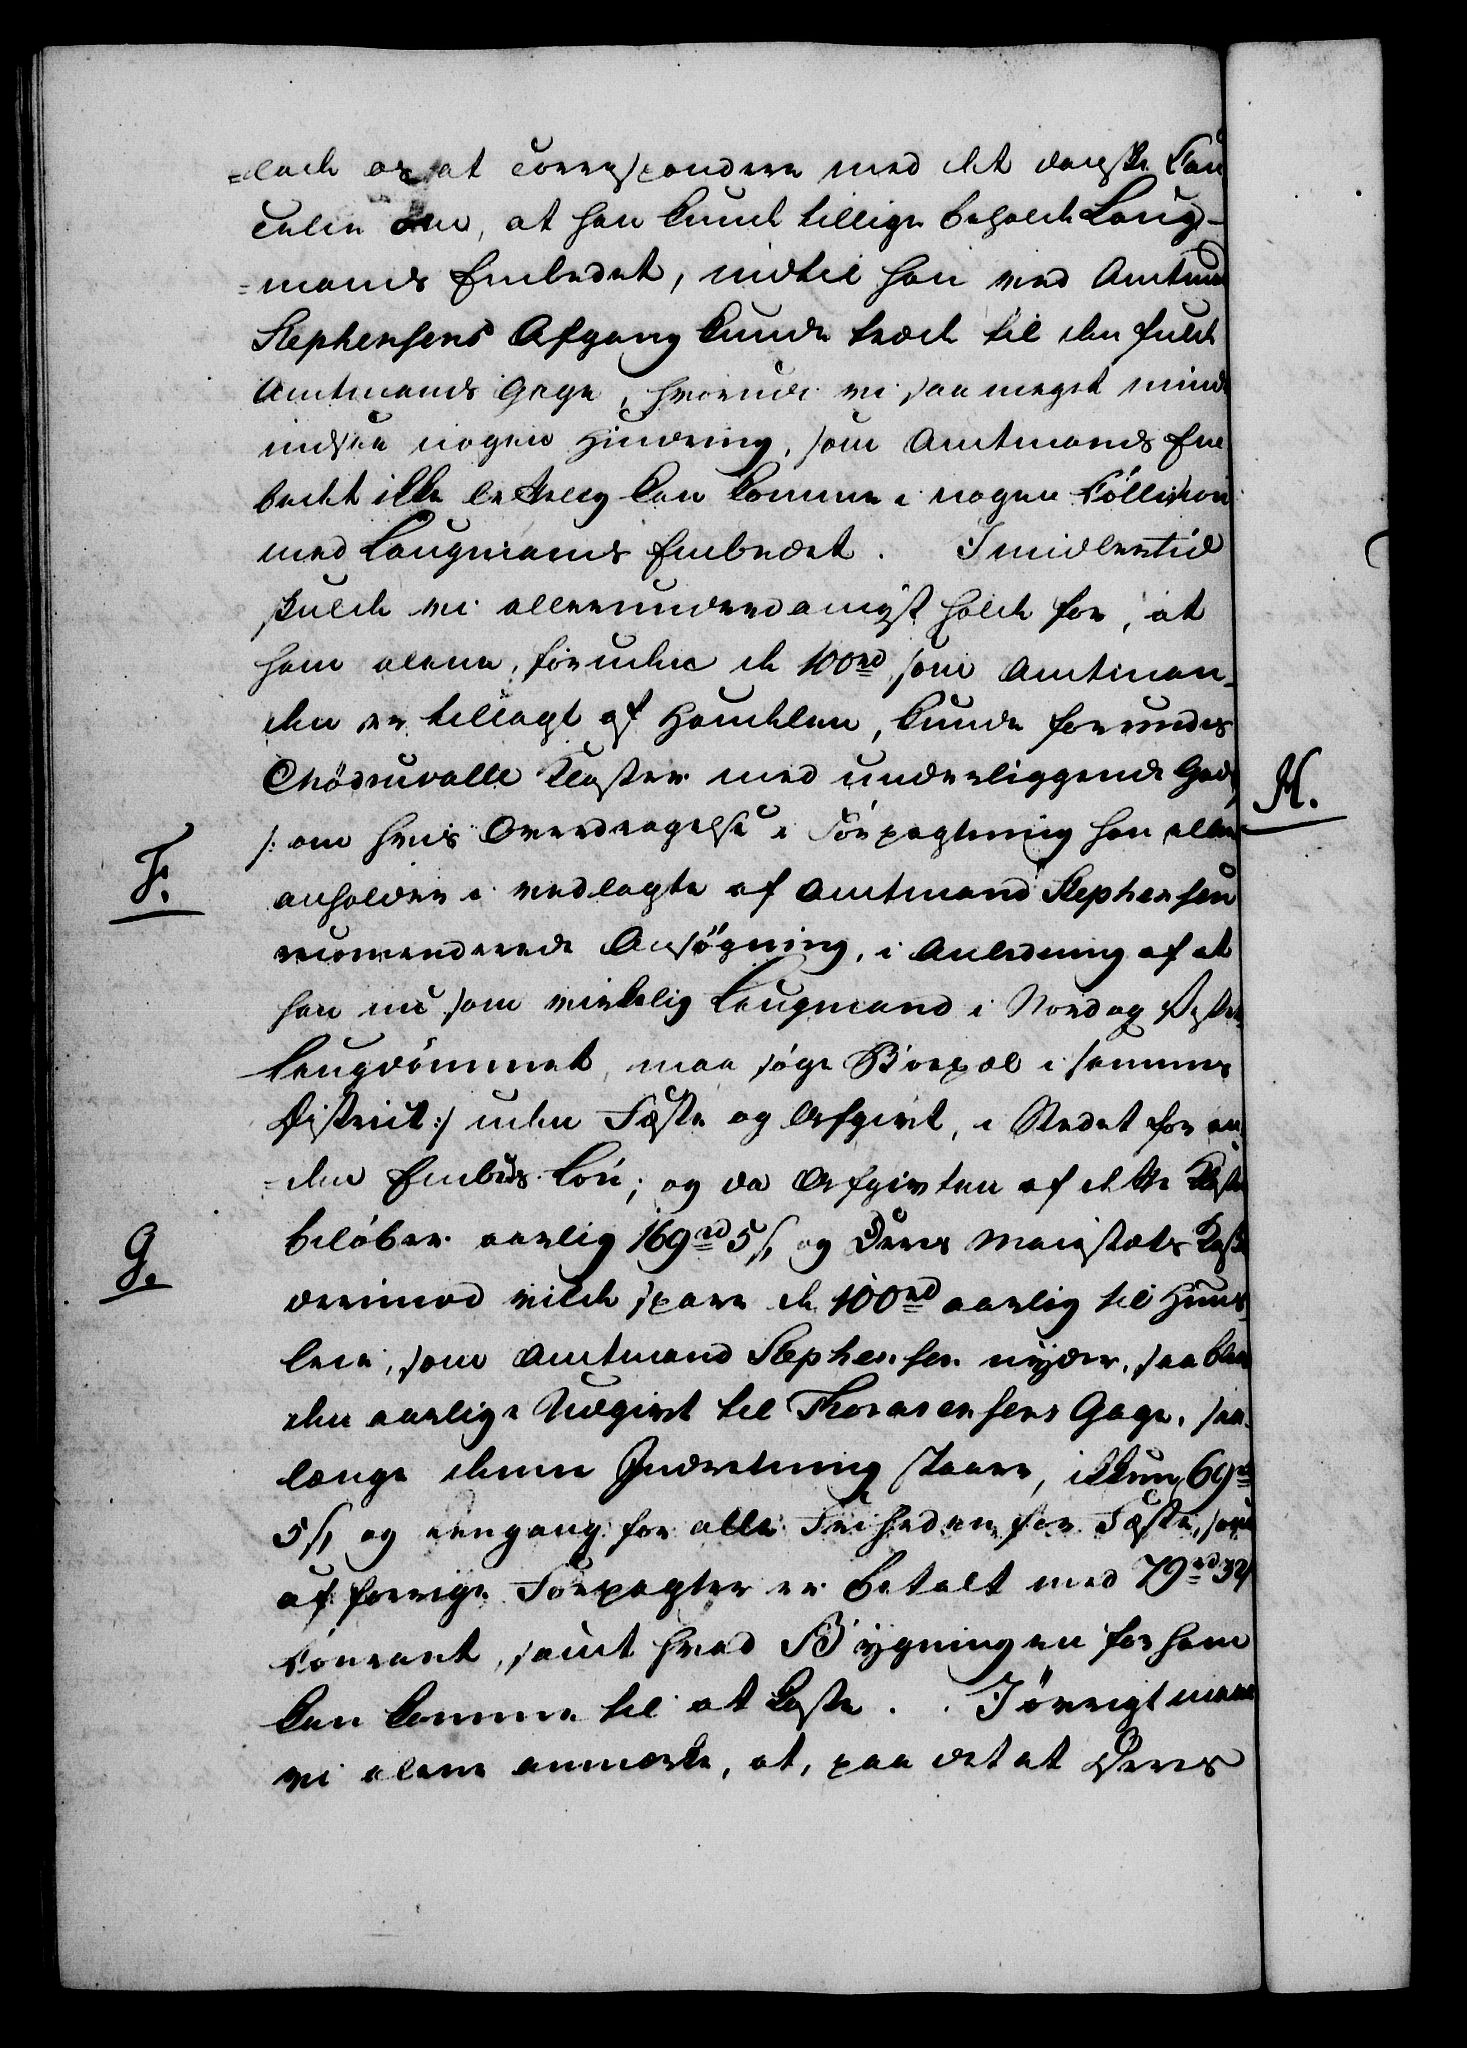 =lade os at correspondere med det danske Can
celie om, at han kunde tillige beholde Laug-
=mands Embedet, indtil han ved Amtmd
Stephensens Afgang kunde træde til den fulde
Amtmands Gage, hvorudi vi saa meget mindre
indsee nogen Hindring, som Amtmands Em
bedet ikke betkelig kan komme i nogen Collision
med Laugmands Embedet. Imidlertid
skulde vi allerunderdanigst holde for, at
ham alene, foruden de 100 rd som Amtman-
den er tillagt af Handelen, kunde forundes
Mödruvalle Kloster med underliggende Gods
/: om hvis Overdragelse i Forpagtning han alle
F.
anholder i vedlagte af Amtmand Stephensen
recomenderede Ansøgning, i Anledning af at
han nu som virkelig Laugmand i Nord og Vester
Laugdømmet, maa søge Boepæl i samme
District :/ uden Fæste og Afgivt, i Stedet for an
=den Embeds Løn; og da Afgivten af dette Kloster
G.
beløber aarlig 169 rd 5 ß, og Deres Majestæts Kasse
derimod vilde spare de 100 rd aarlig til Huus
leie, som Amtmand Stephensen nyder, saa blev
den aarlige Udgivt til Thorarensens Gage, saa
længe denne Indretning staaer, ikkun 69 rd
5 ß, og eengang for alle Friheden for Fæste, som
af forrige Forpagter er betalt med 79 rd 32
Courant, samt hvad Bygningen for ham
kan komme til at koste. Iøvrigt maae
vi alene anmærke, at, paa det at Deres
H.